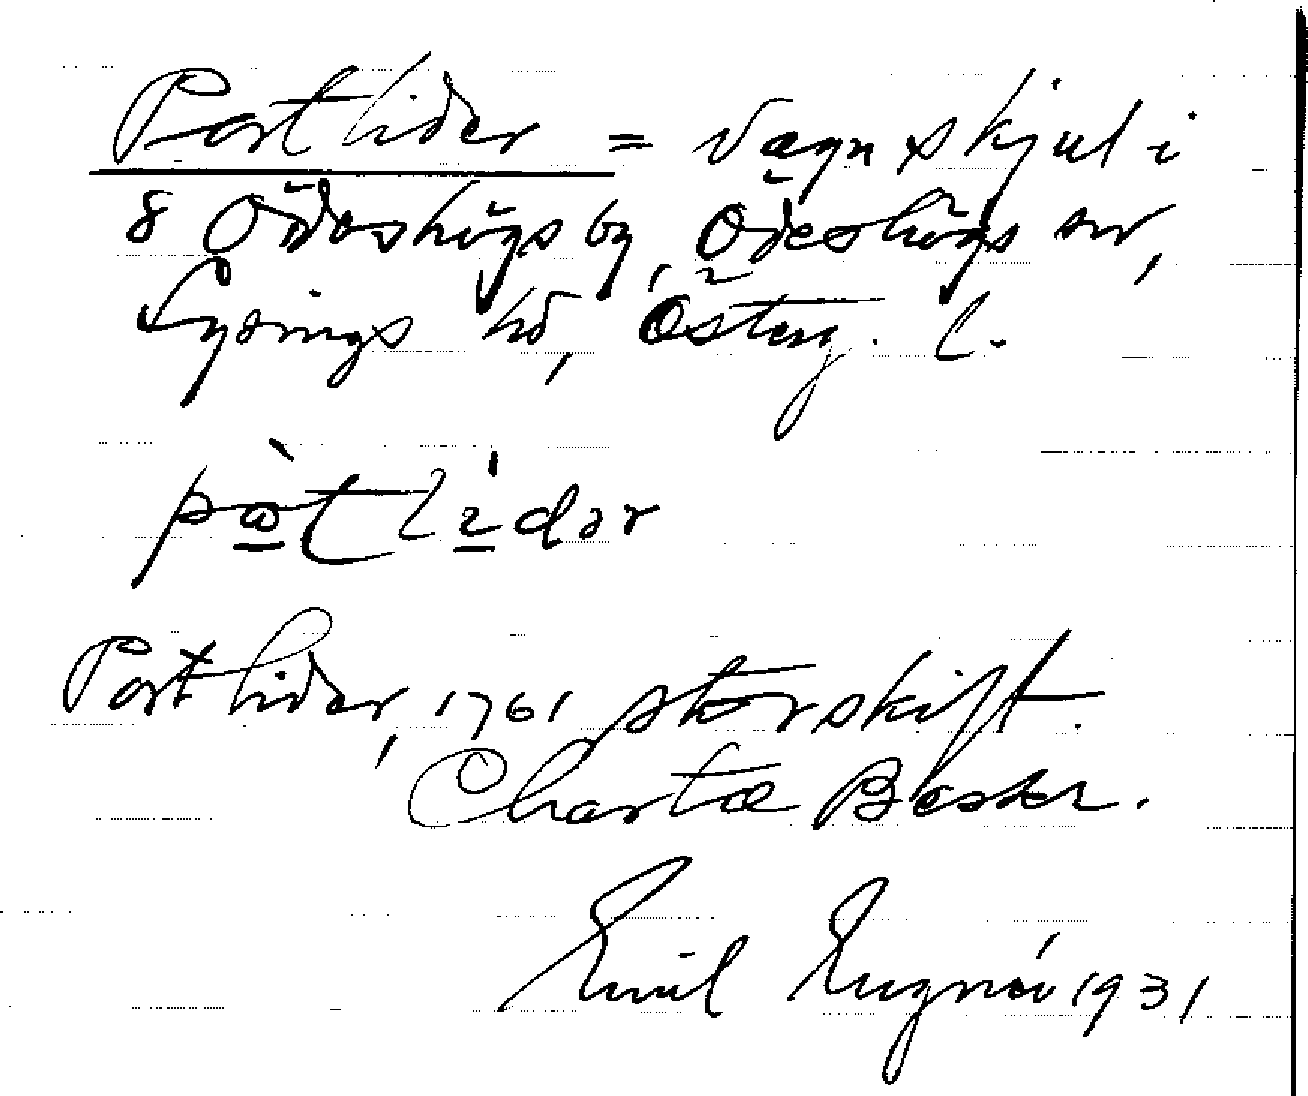 Portlider = Vagnskjul i
8 Ödeshögs by, Ödeshögs sn,
Lysings hd, Österg. L.
pàtlìdər
Portlider, 1761 storskift.
Charta Beskr.
Emil 1931